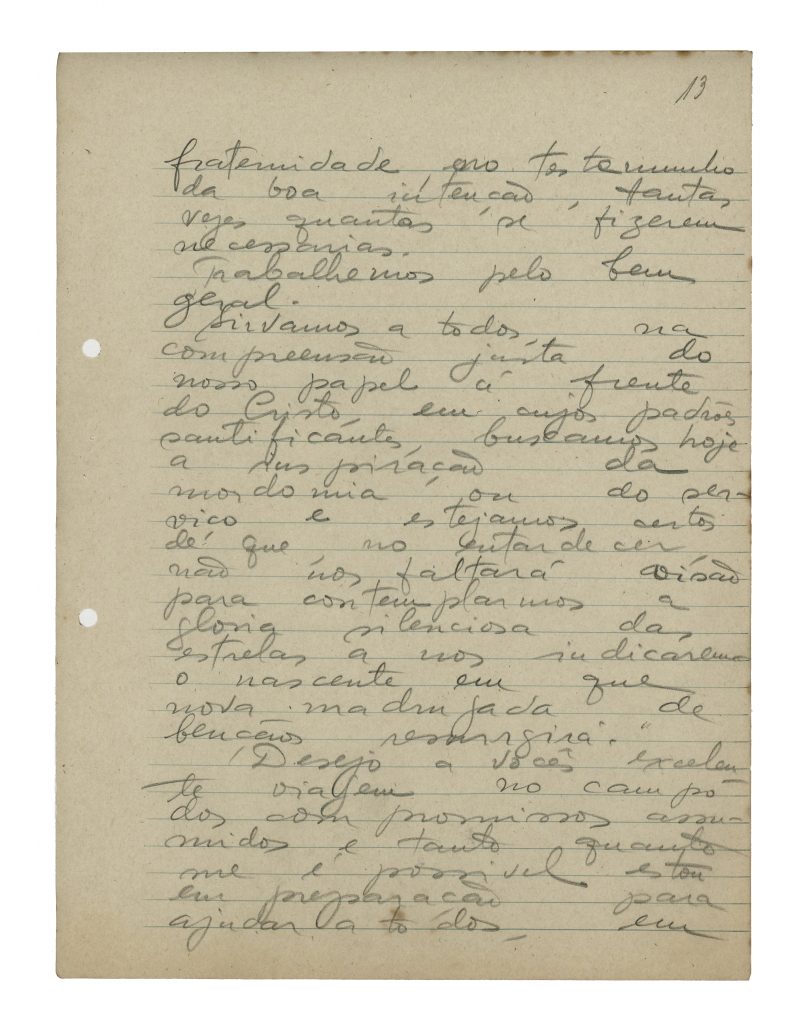 13
fraternidade, no testemunho
da boa intenção, tantas
vezes quantas se fizerem
necessárias.
Trabalhemos pelo bem
geral.
Sirvamos a todos na
compreensão justa do
nosso papel à frente
do Cristo, em cujos padrões
santificantes, buscamos hoje
a inspiração da
mordomia ou do ser-
viço e estejamos certos
de que no entardecer,
não nos faltará visão
para contemplarmos a
gloria silenciosa das
estrelas a nos indicarem
o nascente em que
nova madrugada de
bençãos resurgirá."
Desejo a vocês excelen
te viagem no campo
dos compromissos assu-
midos e tanto quanto
me é possivel estou
em preparação para
ajudar a todos, em